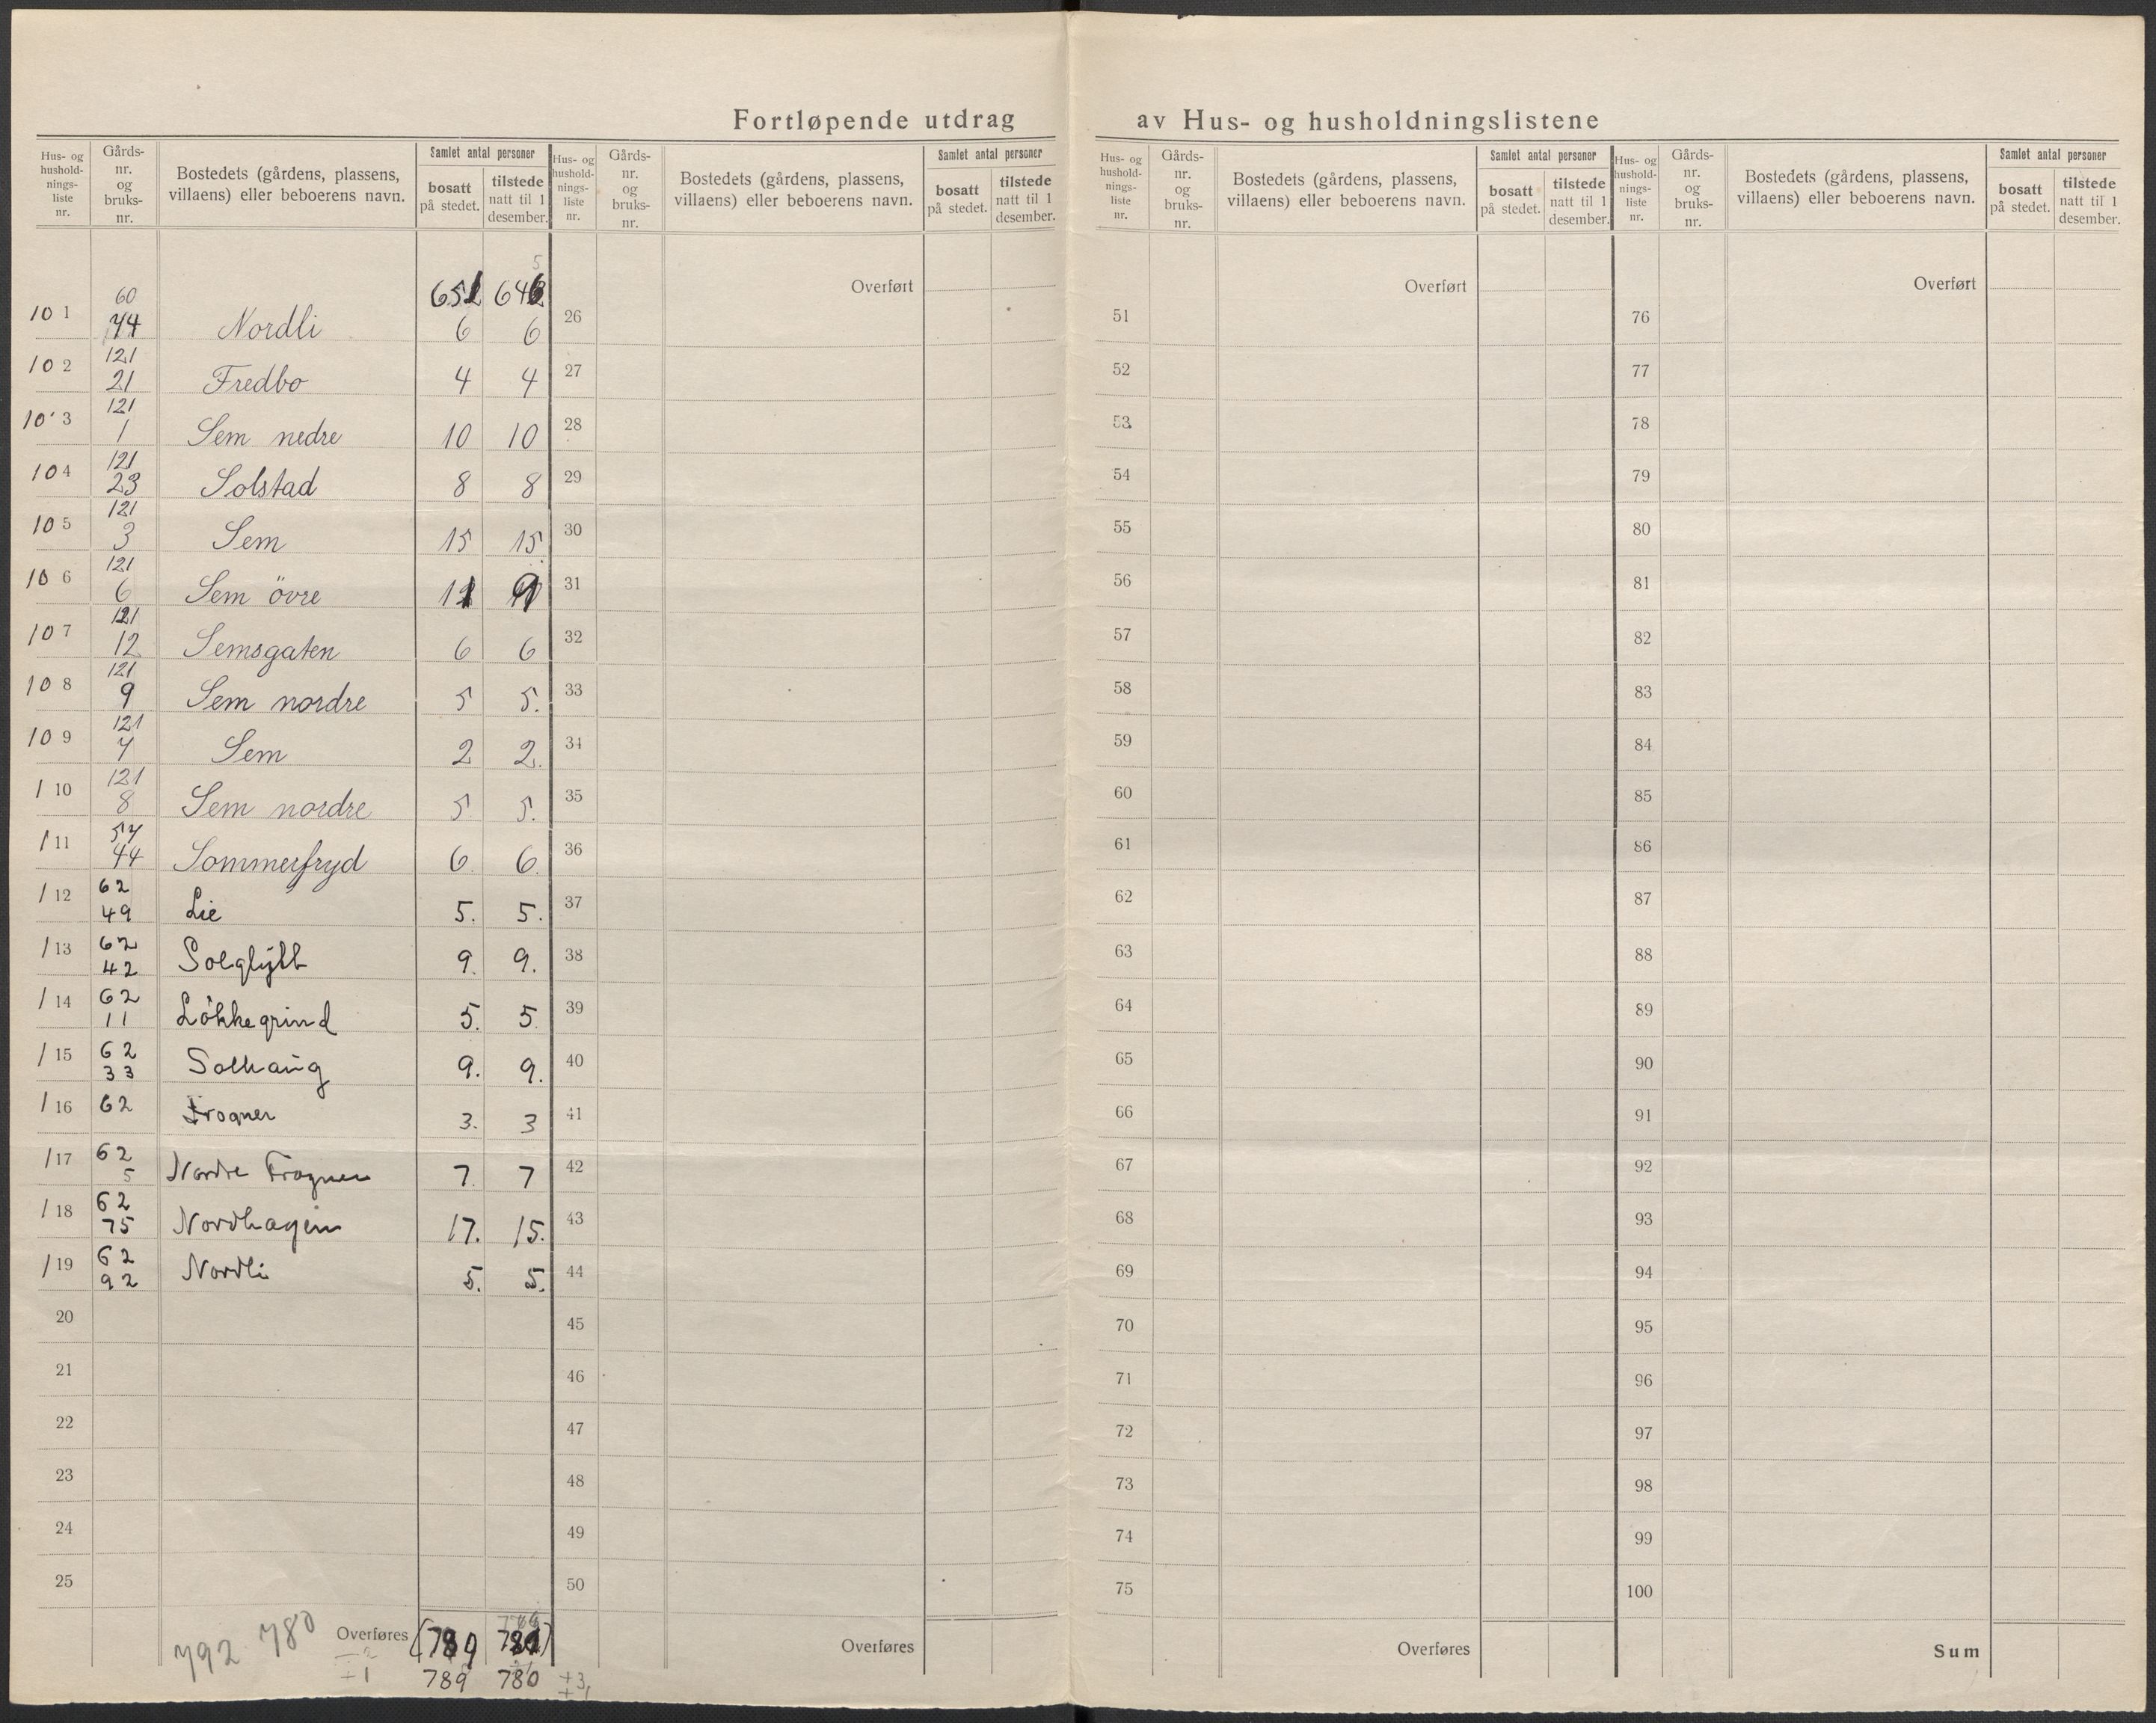 Fortløpende utdrag av Hus- og husholdningslistene
Hus- og hushold- nings- liste nr. Gårds- nr. og bruks- nr. Bostedets (gårdens, plassens, villaens) eller beboerens navn. Samlet antal personer bosatt på stedet. tilstede natt til 1 desember.
Hus- og hushold- nings- liste nr. Gårds- nr. og bruks- nr. Bostedets (gårdens, plassens, villaens) eller beboerens navn. Samlet antal personer bosatt på stedet. tilstede natt til 1 desember.
Hus- og hushold- nings- liste nr. Gårds- nr. og bruks- nr. Bostedets (gårdens, plassens, villaens) eller beboerens navn. Samlet antal personer bosatt på stedet. tilstede natt til 1 desember.
Hus- og hushold- nings- liste nr. Gårds- nr. og bruks- nr. Bostedets (gårdens, plassens, villaens) eller beboerens navn. Samlet antal personer bosatt på stedet. tilstede natt til 1 desember.
5
651 646
101 60 74 Nordli 6 6
102 121 21 Fredbo 4 4
103 121 1 Sem nedre 10 10
104 121 23 Solstad 8 8
105 121 3 Sem 15 15
106 121 6 Sem övre 11 9
107 121 12 Semsgaten 6 6
108 121 9 Sem nordre 5 5.
109 121 7 Sem 2 2.
110 121 8 Sem nordre 5 5.
111 57 44 Sommerfryd 6 6
112 62 49 Lie 5. 5.
113 62 42 Solglytt 9. 9.
114 62 11 Lökkegrind 5. 5.
115 62 33 Solhaug 9. 9.
116 62 Frogner 3. 3
117 62 5 Nordre Frogner 7 7
118 62 75 Nordhagen 17. 15.
119 62 92 Nordli 5. 5.
20
21
22
23
24
25
792 780 Overføres (789
÷1 789 780 ÷3
Overført
26
27
28
29
30
31
32
33
34
35
36
37
38
39
40
41
42
43
44
45
46
47
48
49
50
Overføres
Overført
51
52
53
54
55
56
57
58
59
60
61
62
63
64
65
66
67
68
69
70
71
72
73
74
75
Overføres
Overført
76
77
78
79
80
81
82
83
84
85
86
87
88
89
90
91
92
93
94
95
96
97
98
99
100
Sum